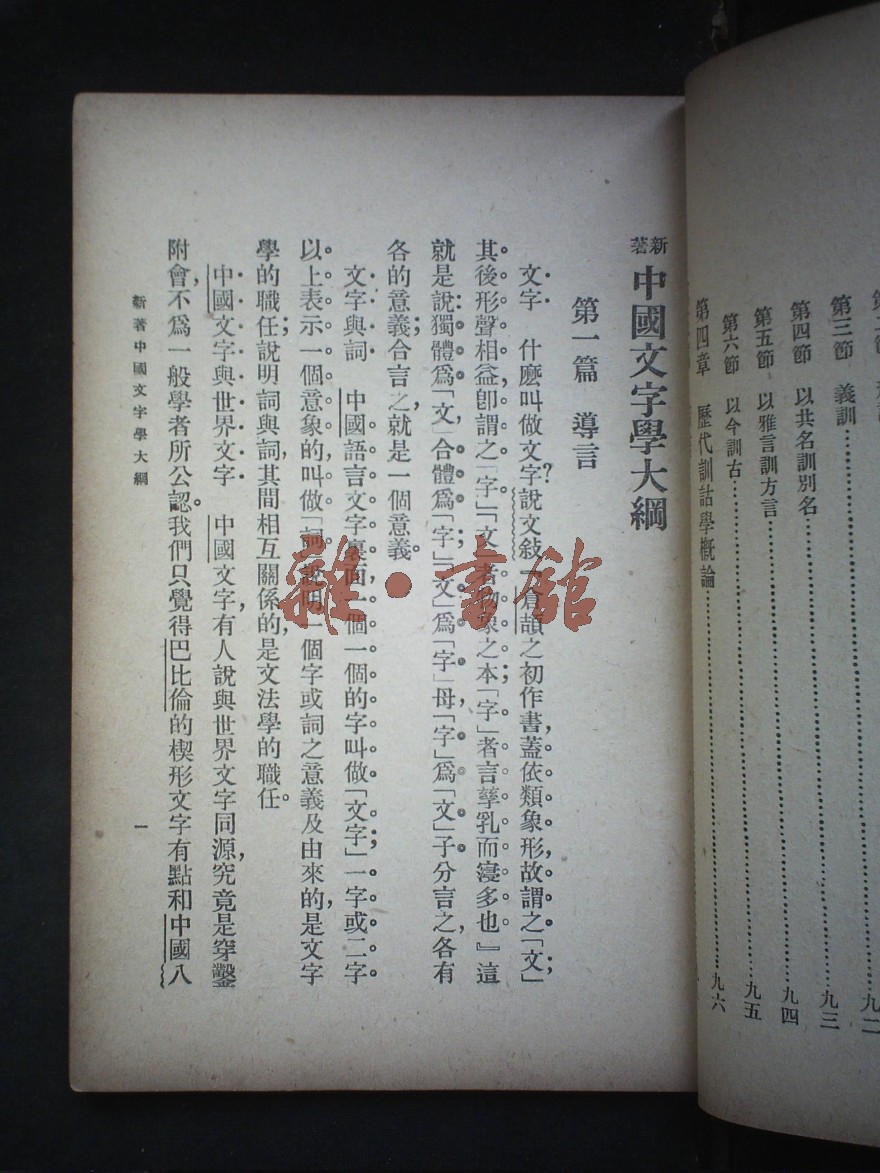 第三節 義訓……九三
第四節 以共名訓別名……九四
第五節 以雅言訓方言……九五
第六節 以今訓古……九六
第四章 歷代訓詁學概論
新著 中國文字學大綱
第一篇 導言
文字 什麽叫做文字?說文敍『倉頡之初作書,蓋依類象形,故謂之「文」;
其後形聲相益,卽謂之「字」。「文」者,物象之本;「字」者,言孳乳而寖多也。』這
就是說:獨體爲「文」,合體爲「字」;「文」爲「字」母,「字」爲「文」子。分言之,各有
各的意義;合言之,就是一個意義。
文字與詞 中國語言文字裏面,一個一個的字叫做「文字」;一字或二字
以上表示一個意象的,叫做「詞」。說明一個字或詞之意義及由來的,是文字
學的職任;說明詞與詞,其間相互關係的,是文法學的職任。
中國文字與世界文字 中國文字,有人說與世界文字同源,究竟是穿鑿
附會,不爲一般學者所公認。我們只覺得巴比倫的楔形文字有點和中國八
新著中國文字學大綱 一
雜·書館